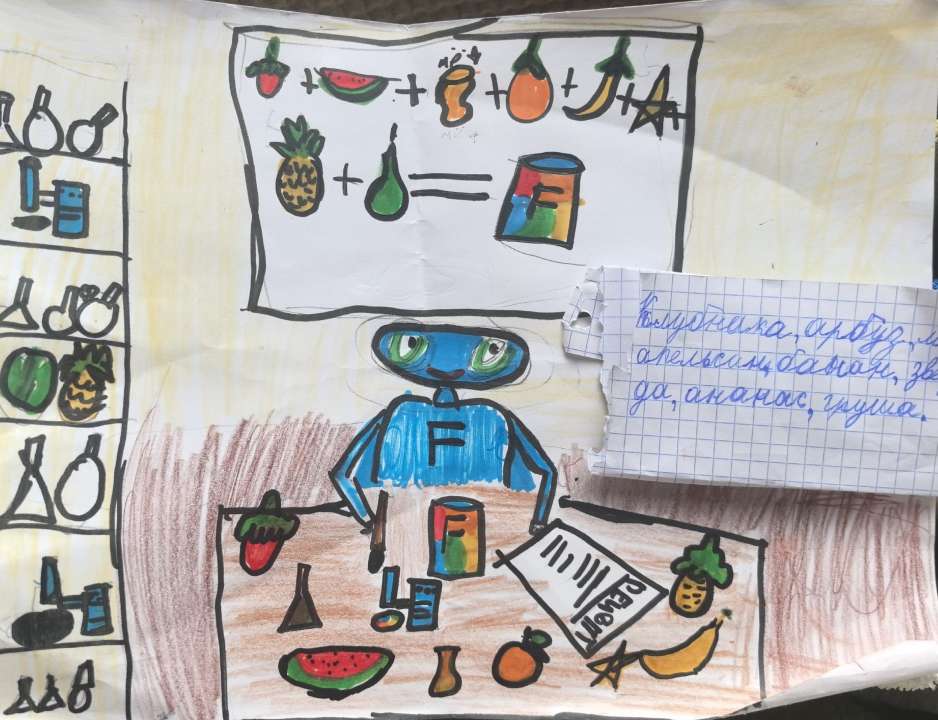 F
Клубника, арбуз, м
апельсин, банан, зв
да, ананас, груша.
F
F
Рецепт